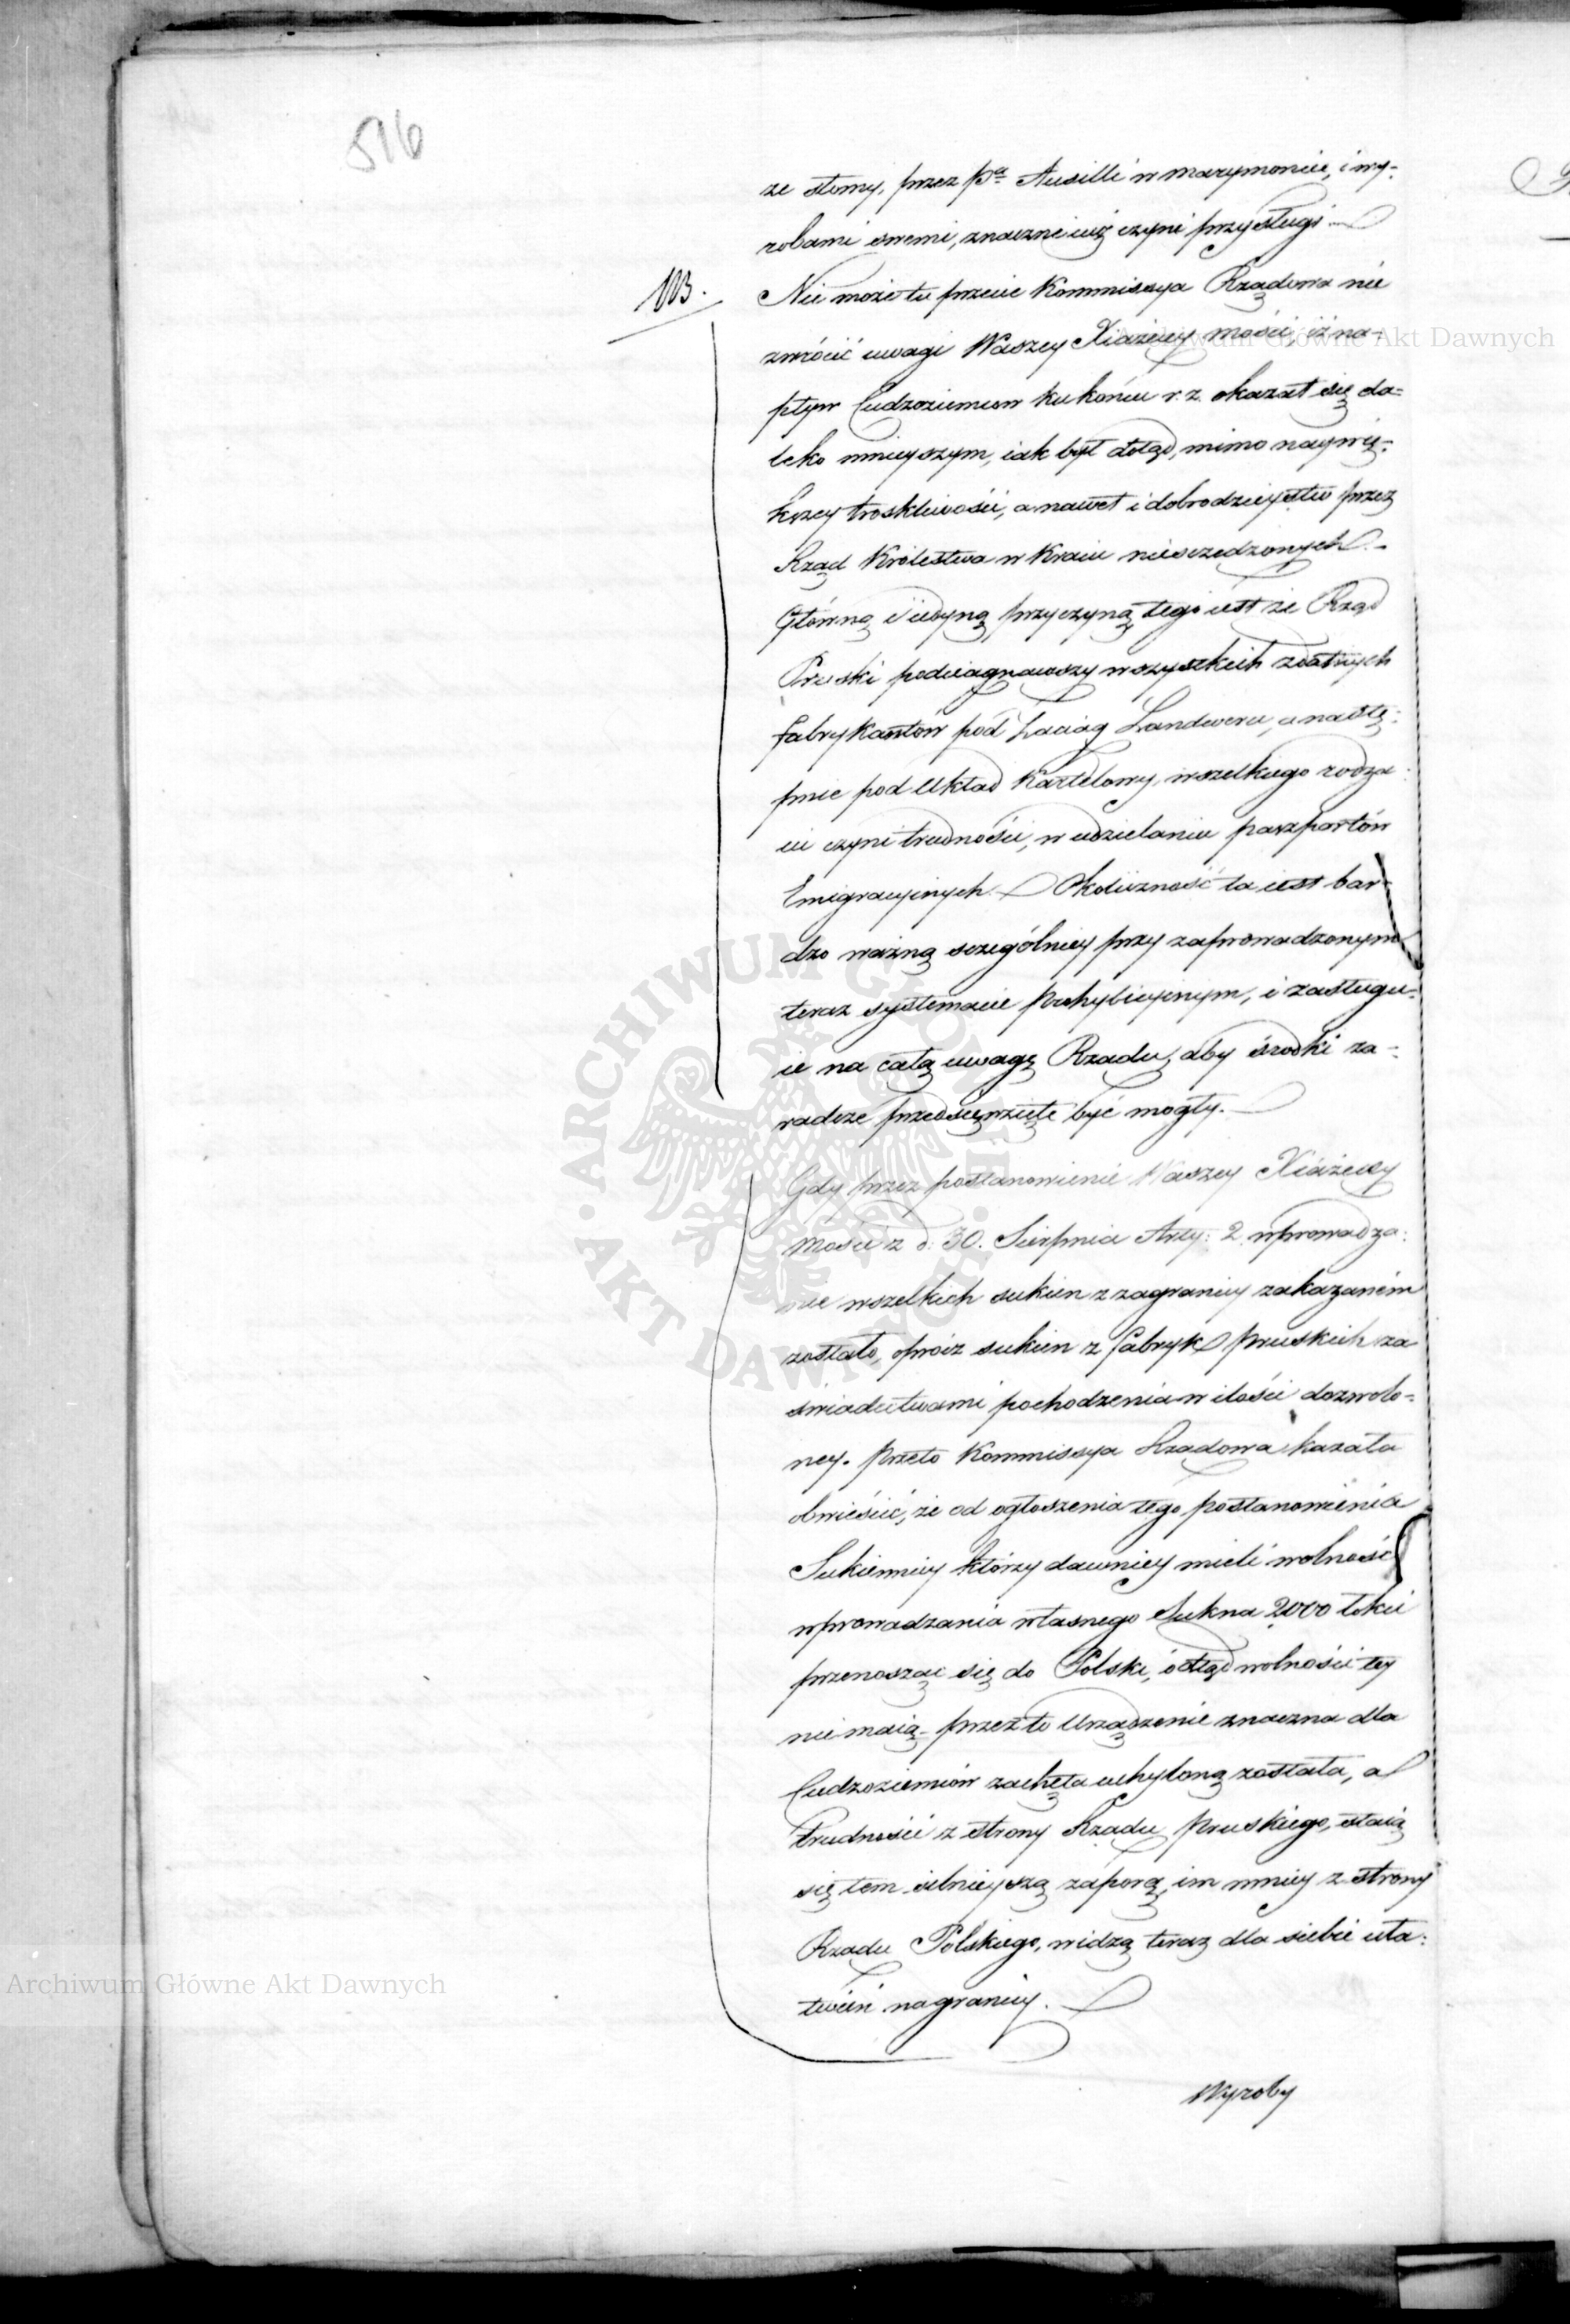 516
ze słomy, przez Pa Ausilli w Marymoncie, i wy-
robami swemi, znaczne iuż czyni przysługi.
NB.
Nie może tu przecie Kommissya Rządowa nie
zwrócić uwagi Waszey Xiążęcey Mości, iż na-
pływ Cudzoziemców ku końcu r. z. okazał się da-
leko mnieyszym, iak był dotąd, mimo naywię-
kszey troskliwości, a nawet i dobrodzieystw przez
Rząd Królestwa w Kraiu nieszczędzonych.
Główną i iedyną przyczyną tego iest że Rząd
Pruski podciągnąwszy wszystkich zdatnych
fabrykantów pod zaciąg Landweru, a nastę-
pnie pod Układ Kartelowy, wszelkiego rodza-
iu czyni trudności, w udzielaniu paszportów
Emigracyinych. Okoliczność ta iest bar-
dzo ważną szczególniey przy zaprowadzonym
teraz systemacie Prohybicyinym, i zasługu-
ie na całą uwagę Rządu, aby środki za-
radcze przedsięwzięte być mogły.
Gdy przez postanowienie Waszey Xiążęcey
Mości z d. 30. Sierpnia Arty: 2 wprowadza-
nie wszelkich sukien z zagranicy zakazaném
zostało, oprócz sukien z fabryk Pruskich za
świadectwami pochodzenia w ilości dozwolo-
ney. Przeto Kommissya Rządowa kazała
obwieścić, że od ogłoszenia tego postanowienia
Sukiennicy którzy dawniey mieli wolność
wprowadzania własnego Sukna 2000 łokci
przenosząc się do Polski, odtąd wolności tey
nie maią przez to Urządzenie znaczna dla
Cudzoziemców zachęta uchyloną została, a
trudności z strony Rządu Pruskiego, staią
się tem silnieyszą zaporą, im mniey z strony
Rządu Polskiego, widzą teraz dla siebie uła-
twień na granicy.
Wyroby
Archiwum Główne Akt Dawnych
Archiwum Główne Akt Dawnych
ARCHIWUM GŁÓWNE
AKT DAWNYCH